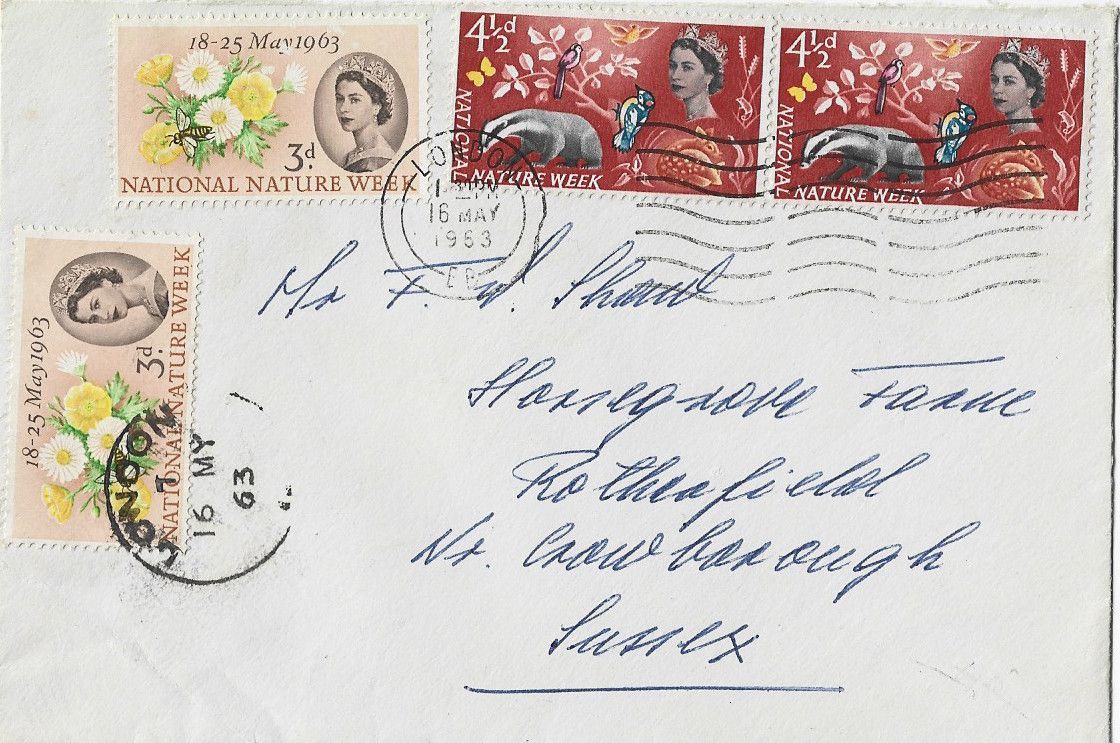 18-25 May 1963
3d.
NATIONAL NATURE WEEK
4½d
NATIONAL
NATURE WEEK
4½d
NATIONAL
NATURE WEEK
LONDON
16 MAY
1963
18-25 May 1963
3d.
NATIONAL NATURE WEEK
LONDON
16 MY
63
Mr F. W. Shaw
Horsegrove Farm
Rotherfield
Nr. Crowborough
Sussex